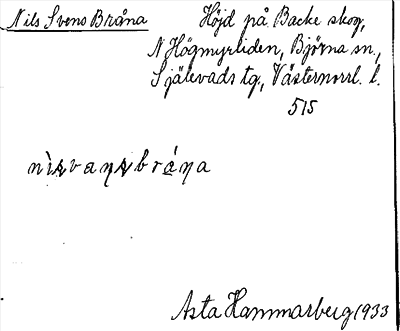 Nils Svens Bråna
Höjd på Backe skog,
N Högmyrliden, Björna sn.,
Själevads tg., Västernorrl. l.
515
nìsvansbrána
Asta Hammarberg 1933